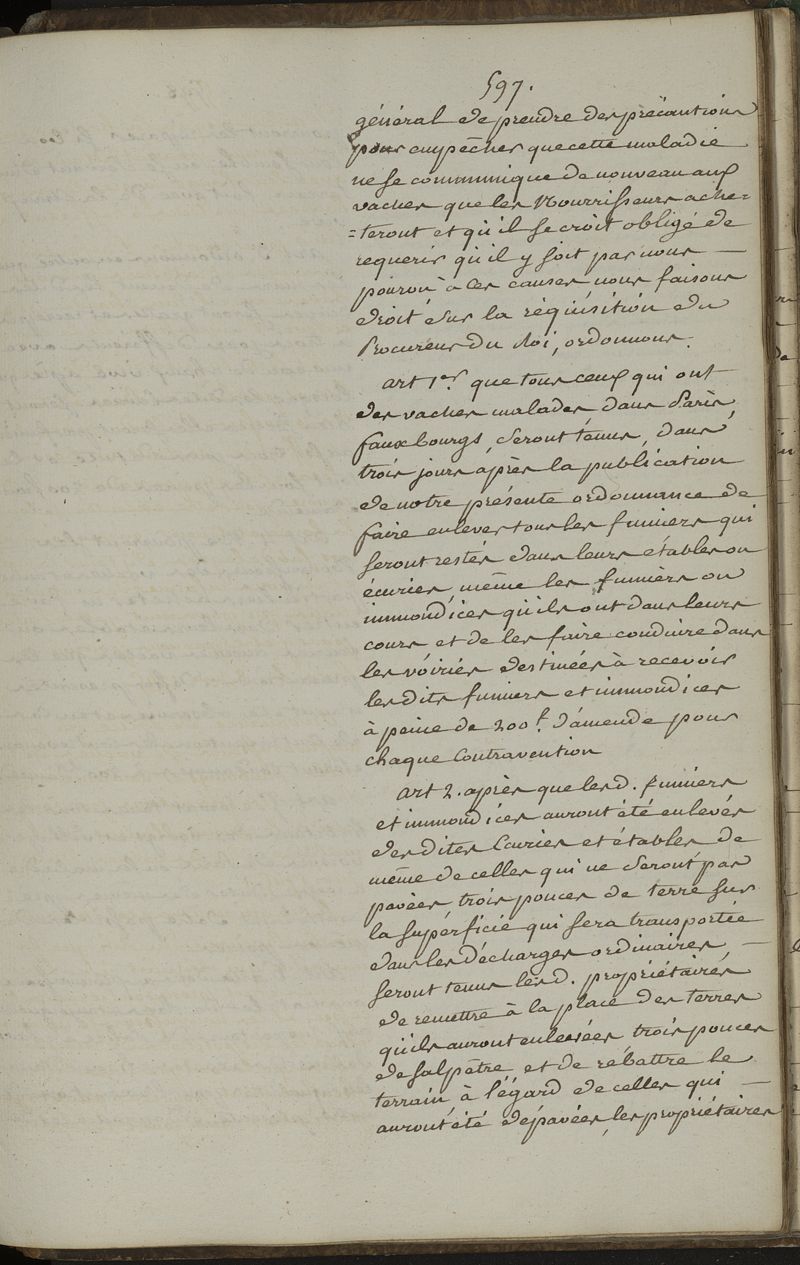 597.
général de prendre des précautions
pour empêcher que cette maladie
ne se communique de nouveau aux
vaches que les Nourrisseurs ache=
=teront et qu'il se croit obligé de
requerir qu'il y soit par nous —
pourvu à ces causes nous faisons
droit sur la réquisition du
Procureur du Roi, ordonnons.
art 1er. que tous ceux qui ont
des vaches malades dans Paris,
fauxbourgs, seront tenus, dans
trois jours après la publication
de notre présente ordonnance de
faire enlever tous les fumiers qui
seront restés dans leurs étables ou
écuries, même les fumiers ou
immondices qu'ils ont dans leurs
cours et de les faire conduire dans
les voiries destinées à recevoir
les dits fumiers et immondices
à peine de 200 l. d'amende pour
chaque Contravention
art 2. après que lesd. fumiers
et immondices auront été enlevés
des dites Ecuries et étables de
même de celles qui ne seront pas
pavées, trois pouces de terre sur
la superficie qui sera transportée
dans les décharges ordinaires, —
seront tenus lesd. propriétaires
de remettre à la place des terres
qu'ils auront enlevées trois pouces
de salpêtre et de rébattre le
terrain à l'égard de celles qui —
auront été dépavées, les propriétaires